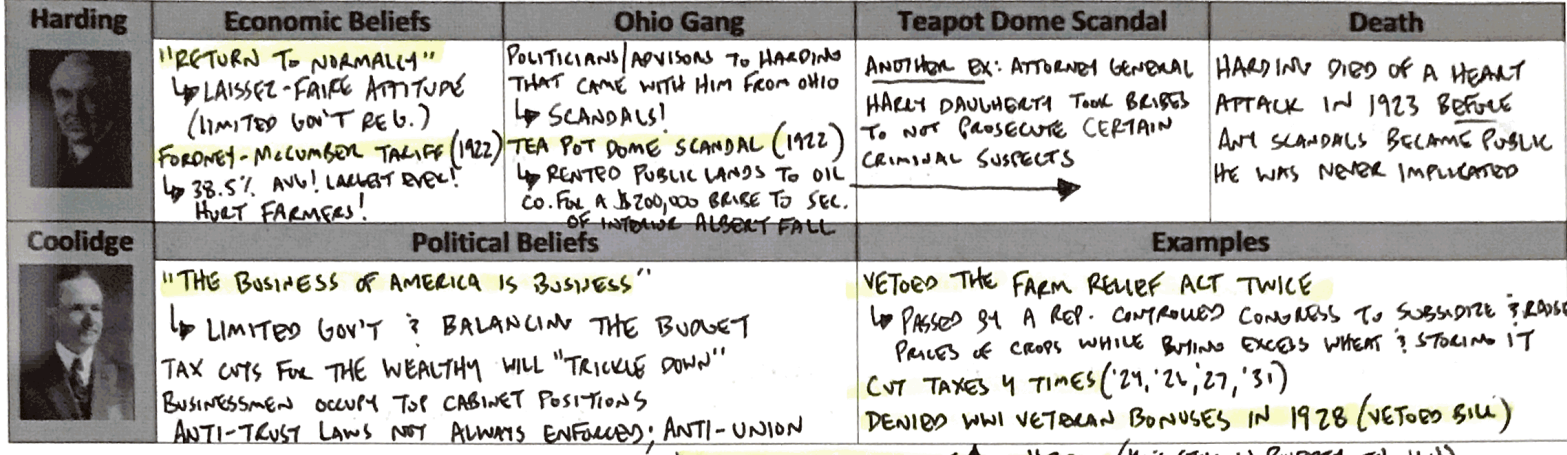 Harding
Economic Beliefs
Ohio Gang
Teapot Dome Scandal
Death
"RETURN TO NORMALLY"
↳ LAISSEZ-FAIRE ATTITUDE
(LIMITED GOV'T REG.)
FORDNEY-McCUMBER TARIFF (1922)
↳ 38.5% AVG! LARGEST EVER!
HURT FARMERS!
POLITICIANS/ADVISORS TO HARDING
THAT CAME WITH HIM FROM OHIO
↳ SCANDALS!
TEA POT DOME SCANDAL (1922)
↳ RENTED PUBLIC LANDS TO OIL
CO. FOR A $200,000 BRIBE TO SEC.
OF INTERIOR ALBERT FALL
ANOTHER EX: ATTORNEY GENERAL
HARRY DAUGHERTY TOOK BRIBES
TO NOT PROSECUTE CERTAIN
CRIMINAL SUSPECTS
HARDING DIED OF A HEART
ATTACK IN 1923 BEFORE
ANY SCANDALS BECAME PUBLIC
HE WAS NEVER IMPLICATED
Coolidge
Political Beliefs
Examples
"THE BUSINESS OF AMERICA IS BUSINESS"
↳ LIMITED GOV'T & BALANCING THE BUDGET
TAX CUTS FOR THE WEALTHY WILL "TRICKLE DOWN"
BUSINESSMEN OCCUPY TOP CABINET POSITIONS
ANTI-TRUST LAWS NOT ALWAYS ENFORCED; ANTI-UNION
VETOED THE FARM RELIEF ACT TWICE
↳ PASSED BY A REP. CONTROLLED CONGRESS TO SUBSIDIZE & RAISE
PRICES OF CROPS WHILE BUYING EXCESS WHEAT & STORING IT
CUT TAXES 4 TIMES ('24, '26, '27, '31)
DENIED WWI VETERAN BONUSES IN 1928 (VETOED BILL)